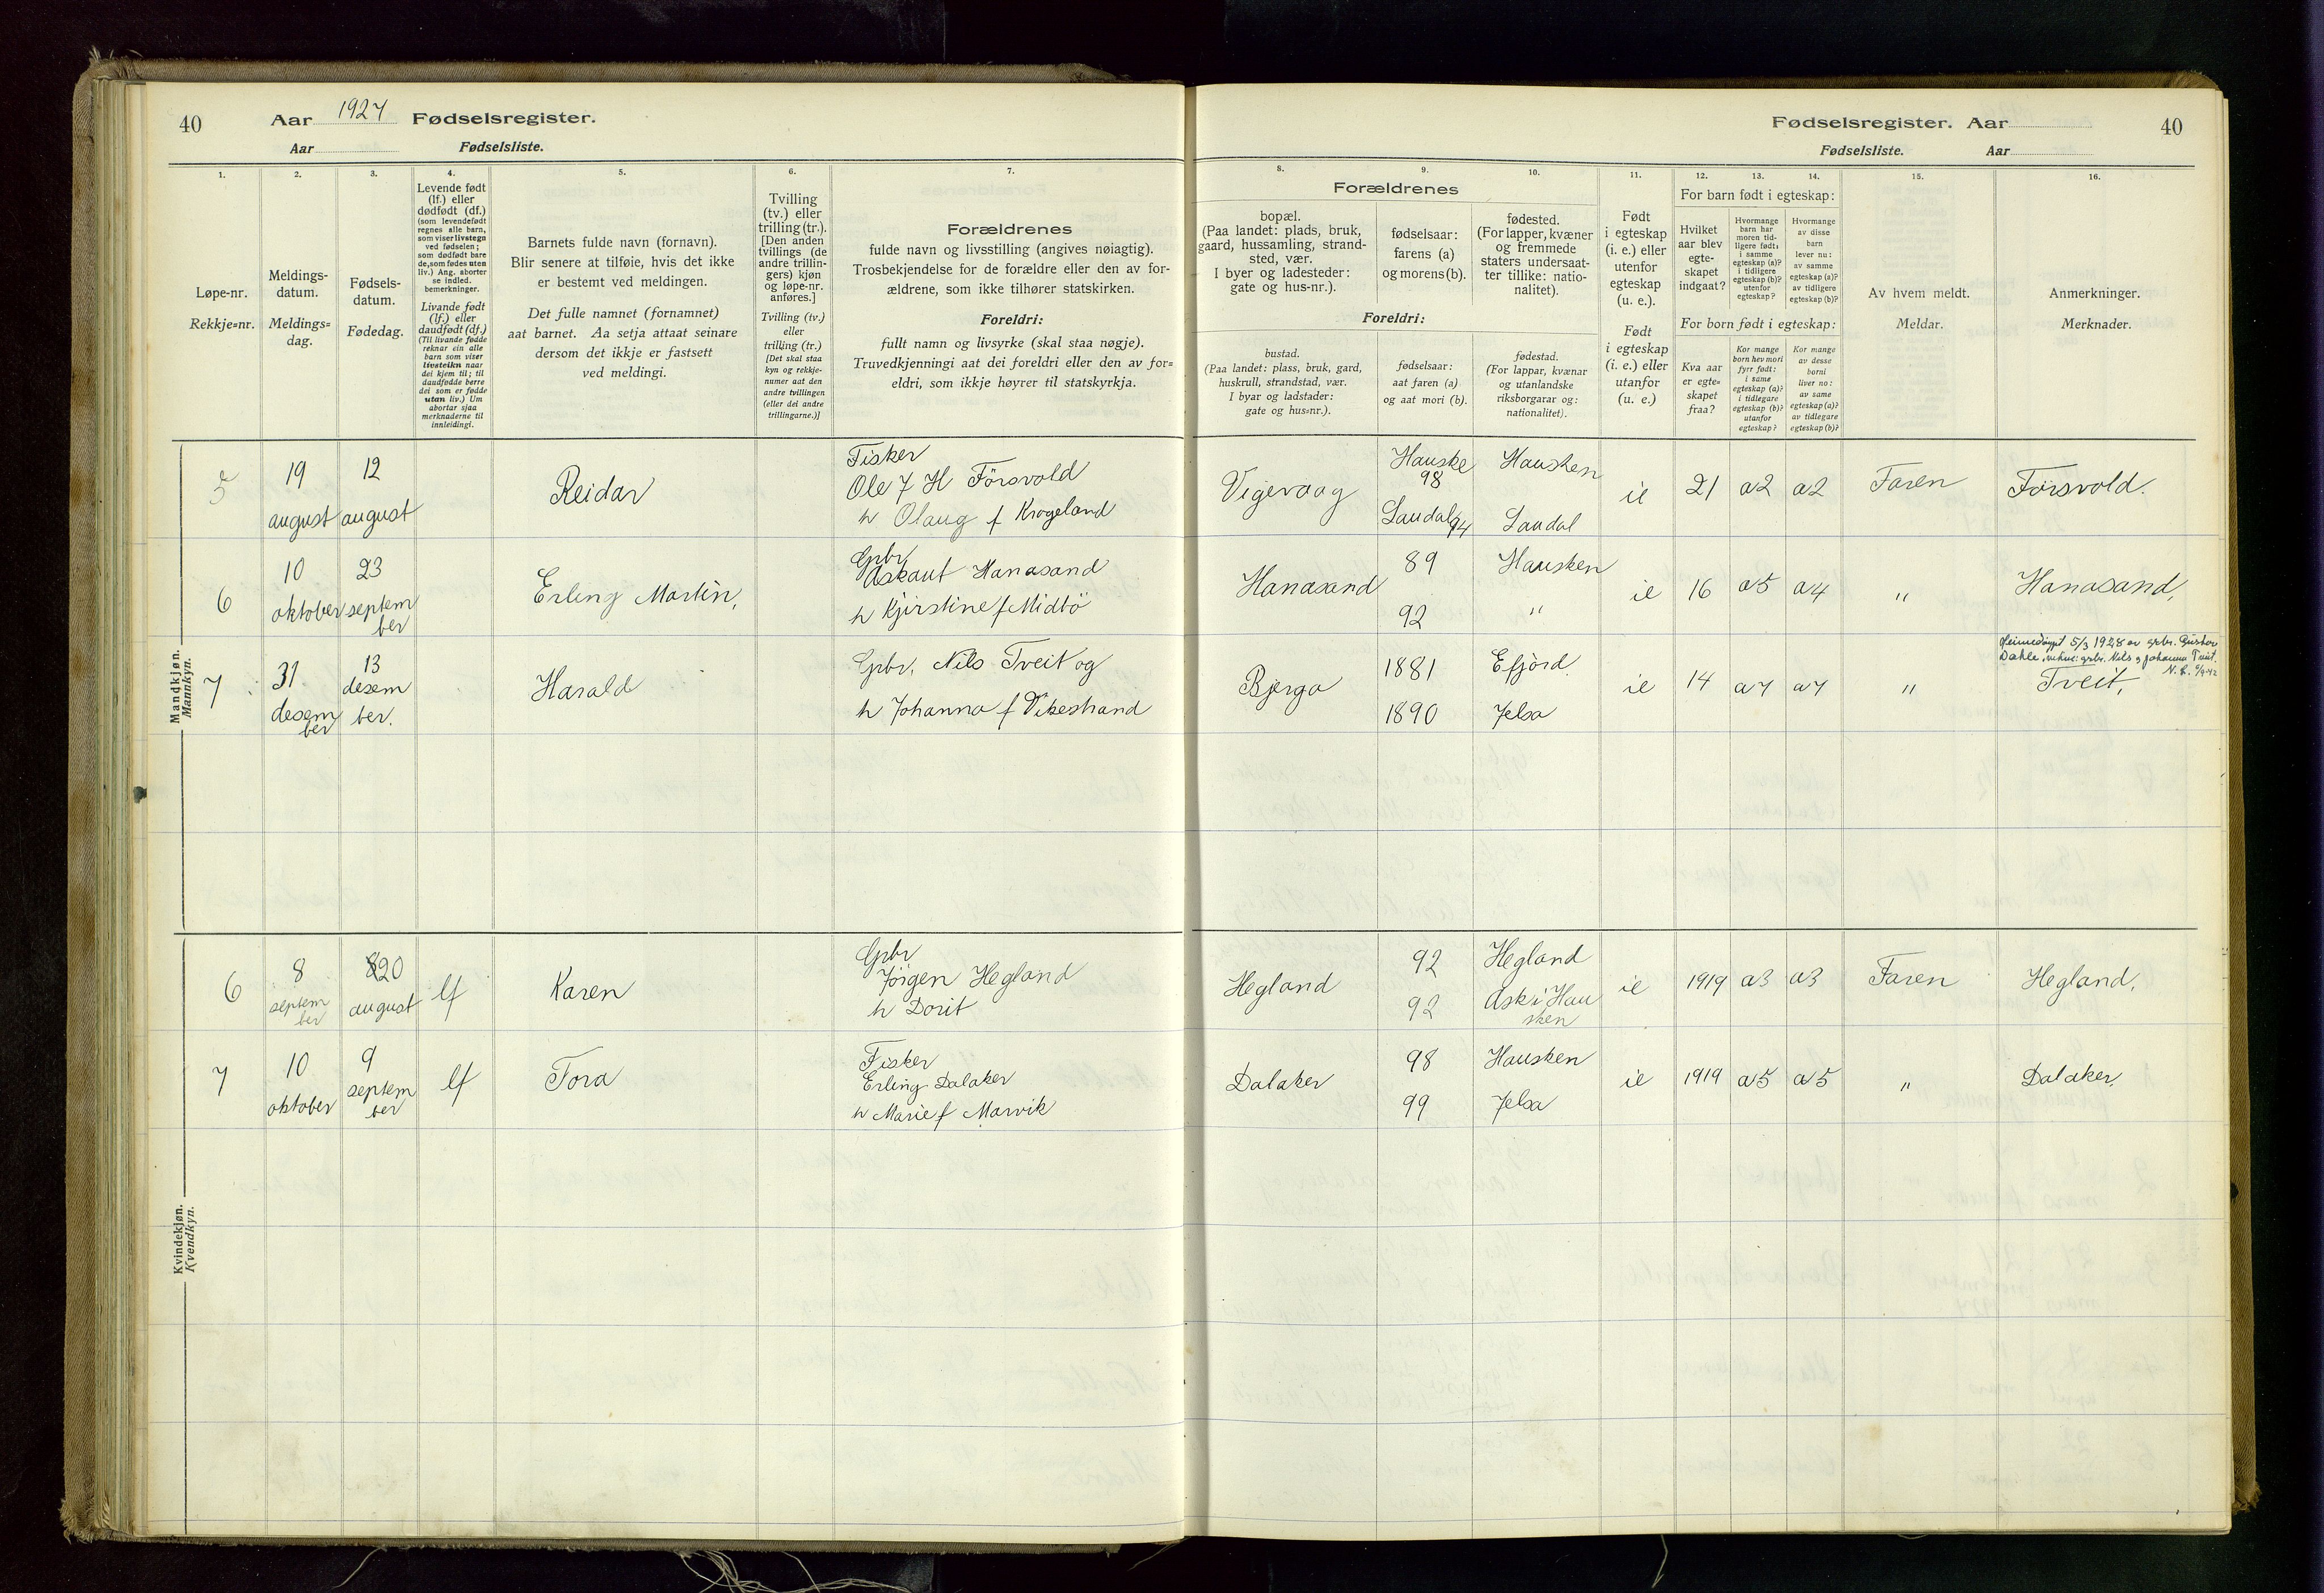 40
Aar 1927 Fødselsregister.
Aar Fødselsliste.
Fødselsregister. Aar
Fødselsliste. Aar
40
1.
Løpe-nr.
Rekkje=nr.
2.
Meldings-
datum.
Meldings=
dag.
3.
Fødsels-
datum.
Fødedag.
4.
Levende født
(lf.) eller
dødfødt (df.)
(som levendefødt
regnes alle barn,
som viser livstegn
ved fødselen;
som dødfødt bare
de, som fødes uten
liv.) Ang. aborter
se indled.
bemerkninger.
Livande født
(lf.) eller
daudfødt (df.)
(Til livande fødde
reknar ein alle
barn som viser
livsteikn naar
dei kjem til; til
daudfødde berre
dei som er fødde
utan liv.) Um
abortar sjaa
merknaderne til
innleidingi.
5.
Barnets fulde navn (fornavn).
Blir senere at tilføie, hvis det ikke
er bestemt ved meldingen.
Det fulle namnet (fornamnet)
aat barnet. Aa setja attaat seinare
dersom det ikkje er fastsett
ved meldingi.
6.
Tvilling
(tv.) eller
trilling (tr.).
[Den anden
tvillings (de
andre trillin-
gers) kjøn
og løpe-nr.
anføres.]
Tvilling (tv.)
eller
trilling (tr.)
[Det skal staa
kyn og rekkje-
numer aat den
andre tvillingen
(eller dei andre
trillingarne.)]
7.
Forældrenes
fulde navn og livsstilling (angives nøiagtig).
Trosbekjendelse for de forældre eller den av for-
ældrene, som ikke tilhører statskirken.
Foreldri:
fullt namn og livsyrke (skal staa nøgje).
Truvedkjenningi aat dei foreldri eller den av for=
eldri, som ikkje høyrer til statskyrkja.
8.
9.
10.
Forældrenes
bopæl.
(Paa landet: plads, bruk,
gaard, hussamling, strand-
sted, vær.
I byer og ladesteder:
gate og hus-nr.).
fødselsaar:
farens (a)
og morens (b).
fødested.
(For lapper, kvæner
og fremmede
staters undersaat-
ter tillike: natio-
nalitet).
Foreldri:
bustad.
(Paa landet: plass, bruk, gard,
huskrull, strandstad, vær.
I byar og ladstader:
gate og hus=nr.).
fødselsaar:
aat faren (a)
og aat mori (b).
fødestad.
(For lappar, kvænar
og utanlandske
riksborgarar og:
nationalitet).
11.
Født
i egteskap
(i. e.) eller
utenfor
egteskap
(u. e.).
Født
i egteskap
(i. e.) eller
utanfor
(u. e.)
12.
13.
14.
For barn født i egteskap:
Hvilket
aar blev
egte-
skapet
indgaat?
Hvormange
barn har
moren tid-
ligere født:
i samme
egteskap (a)?
i tidligere
egteskap (b)?
utenfor
egteskap?
Hvormange
av disse
barn
lever nu:
av samme
egteskap (a)?
av tidligere
egteskap (b)?
For born født i egteskap:
Kva aar
er egte=
skapet
fraa?
Kor mange
born hev mori
fyrr født:
i same
egteskap (a)?
i tidlegare
egteskap (b)?
utanfor
egteskap?
Kor mange
av desse
borni
liver no:
av same
egteskap (a)?
av tidlegare
egteskap (b)?
15.
Av hvem meldt.
Meldar.
16.
Anmerkninger.
Merknader.
Mandkjøn.
Mannkyn.
5
19
august
12
august
Reidar
Fisker
Ole H Försvold
h Olaug f Krogeland
Vigevaag
Hauske
98
Laudal 94
Hausken
Laudal
ie
21
a2
a2
Faren
Försvold.
6
10
oktober
23
septem
ber
Erling Martin,
Gpbr
Askaut Hanasand
h Kjirstine f Midtö
Hanasand
89
92
Hausken
"
ie
16
a5
a4
"
Hanasand,
7
31
desem
ber
13
desem
ber.
Harald
Gpbr, Nils Tveit og
h Johanna f Vikestrand
Bjerga
1881
1890
Efjord
Jelsa
ie
14
a7
a7
"
Heimedöypt 5/3 1928 av grbr. Gustav
Dahle, grbr. Nils og Johanna Tveit.
Tveit,
Kvindekjøn.
Kvendkyn.
6
8
septem
ber
20
august
lf
Karen
Gpbr
Jörgen Hegland
h Dorit
Hegland
92
92
Hegland
Ask i Hau
sken
ie
1919
a3
a3
Faren
Hegland.
7
10
oktober
9
septem
ber
lf
Tora
Fisker
Erling Dalaker
h Marie f Marvik
Dalaker
98
99
Hausken
Jelsa
ie
1919
a5
a5
"
Dalaker.